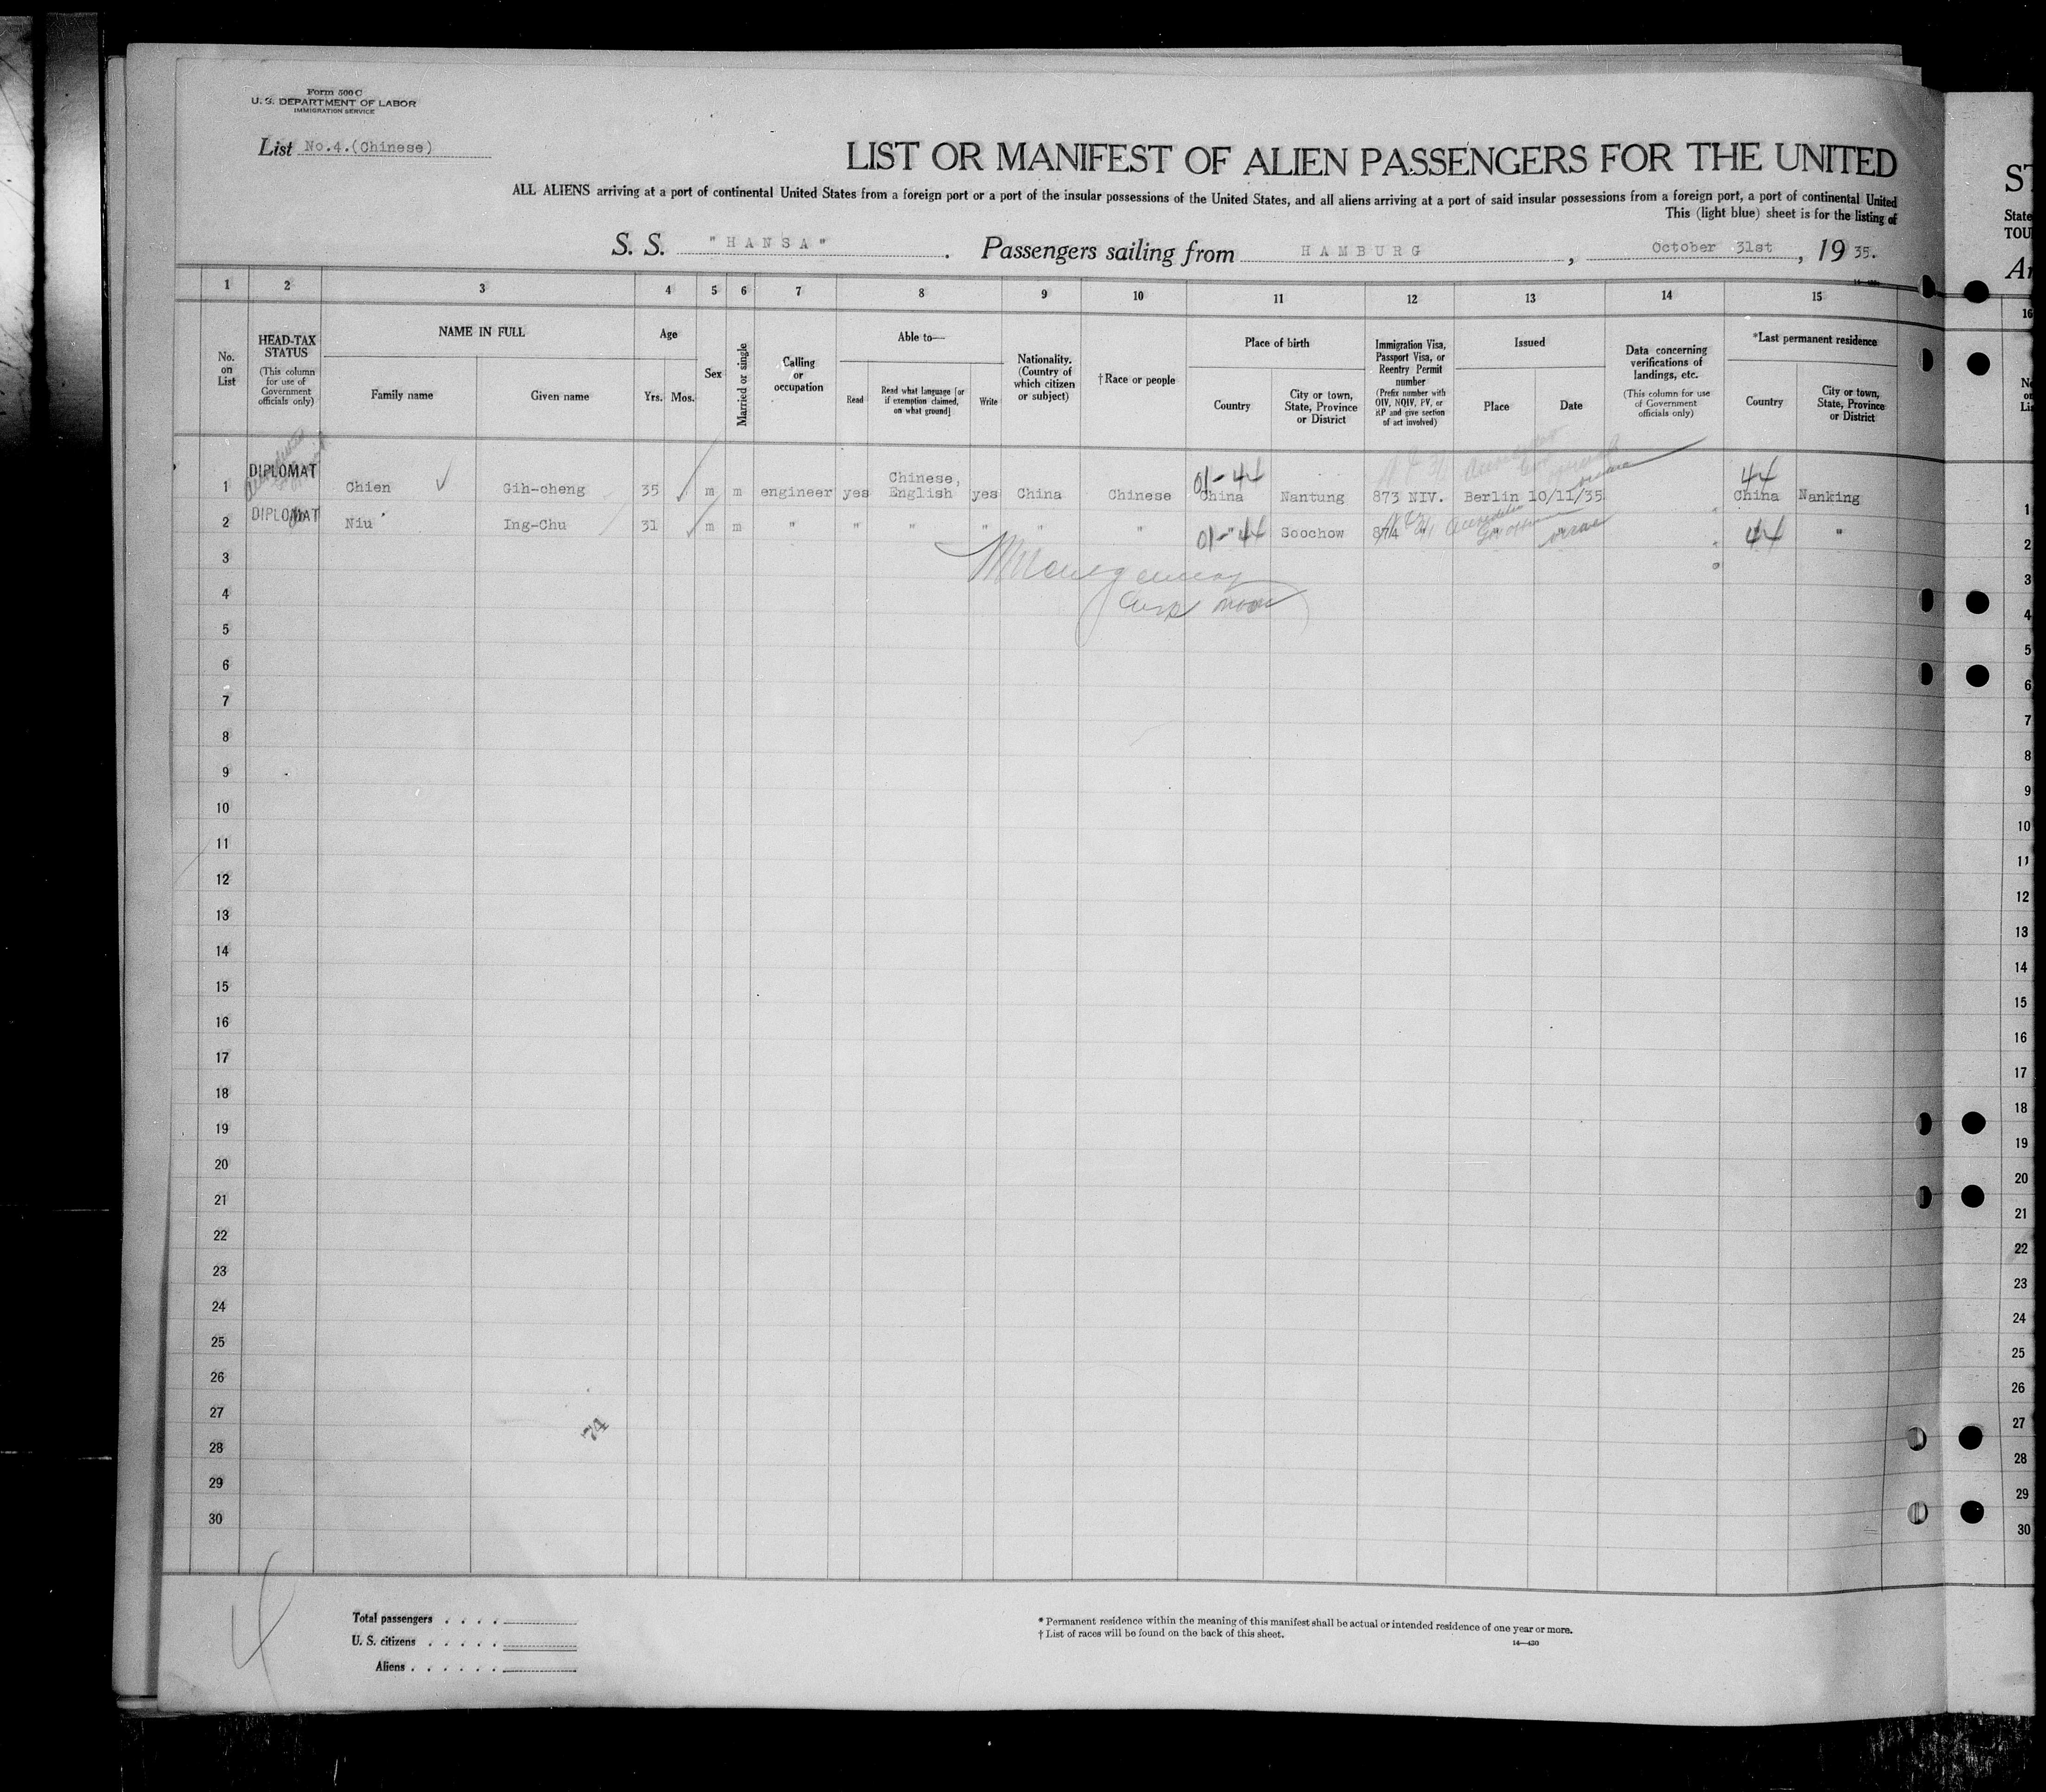 Form 500 C
U. S. DEPARTMENT OF LABOR
IMMIGRATION SERVICE
List No.4.(Chinese)
LIST OR MANIFEST OF ALIEN PASSENGERS FOR THE UNITED
ALL ALIENS arriving at a port of continental United States from a foreign port or a port of the insular possessions of the United States, and all aliens arriving at a port of said insular possessions from a foreign port, a port of continental United
This (light blue) sheet is for the listing of
S. S. "HANSA". Passengers sailing from HAMBURG, October 31st, 1935.
1 2 3 4 5 6 7 8 9 10 11 12 13 14 15
No. on List
HEAD-TAX STATUS (This column for use of Government officials only)
NAME IN FULL
Family name
Given name
Age
Yrs. Mos.
Sex
Married or single
Calling or occupation
Able to—
Read
Read what language [or if exemption claimed, on what ground]
Write
Nationality. (Country of which citizen or subject)
†Race or people
Place of birth
Country
City or town, State, Province or District
Immigration Visa, Passport Visa, or Reentry Permit number (Prefix number with QIV, NQIV, PV, or RP and give section of act involved)
Issued
Place
Date
Data concerning verifications of landings, etc. (This column for use of Government officials only)
*Last permanent residence
Country
City or town, State, Province or District
01-44 44
1 DIPLOMAT Chien Gih-cheng 35 m m engineer yes Chinese, English yes China Chinese China Nantung 873 NIV. Berlin 10/11/35 China Nanking
2 DIPLOMAT Niu Ing-Chu 31 m m " " " " " " 01-"44 Soochow 874 " 44 "
3
4
5
6
7
8
9
10
11
12
13
14
15
16
17
18
19
20
21
22
23
24
25
26
27
74
28
29
30
4
Total passengers . . . .
U. S. citizens . . . . .
Aliens . . . . . .
* Permanent residence within the meaning of this manifest shall be actual or intended residence of one year or more.
† List of races will be found on the back of this sheet.
14—430
ST
State
TOU
16
1
2
3
4
5
6
7
8
9
10
11
12
13
14
15
16
17
18
19
20
21
22
23
24
25
26
27
28
29
30